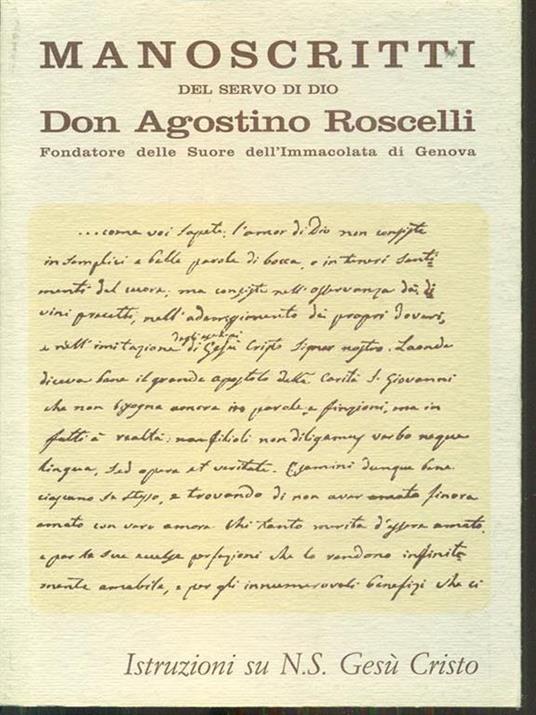 MANOSCRITTI
DEL SERVO DI DIO
Don Agostino Roscelli
Fondatore delle Suore dell'Immacolata di Genova
...come voi sapete, l'amor di Dio non consiste
in semplici e belle parole di bocca, o in teneri senti=
menti del cuore, ma consiste nell'osservanza dei di
vini precetti, nell'adempimento dei propri doveri,
e nell'imitazione degli esempi di Gesù Cristo Signor nostro. Laonde
diceva bene il grande apostolo della Carità S. Giovanni
che non bisogna amare in parole e finzioni, ma in
fatti e realtà: non filioli non diligamus verbo neque
lingua, sed opere et veritate. Esamini dunque bene
ciascuno se stesso, e trovando di non aver amato finora
amato con vero amore Chi tanto merita d'essere amato,
e per le sue eccelse perfezioni che lo rendono infinita=
mente amabile, e per gli innumerevoli benefizi che ci
Istruzioni su N.S. Gesù Cristo